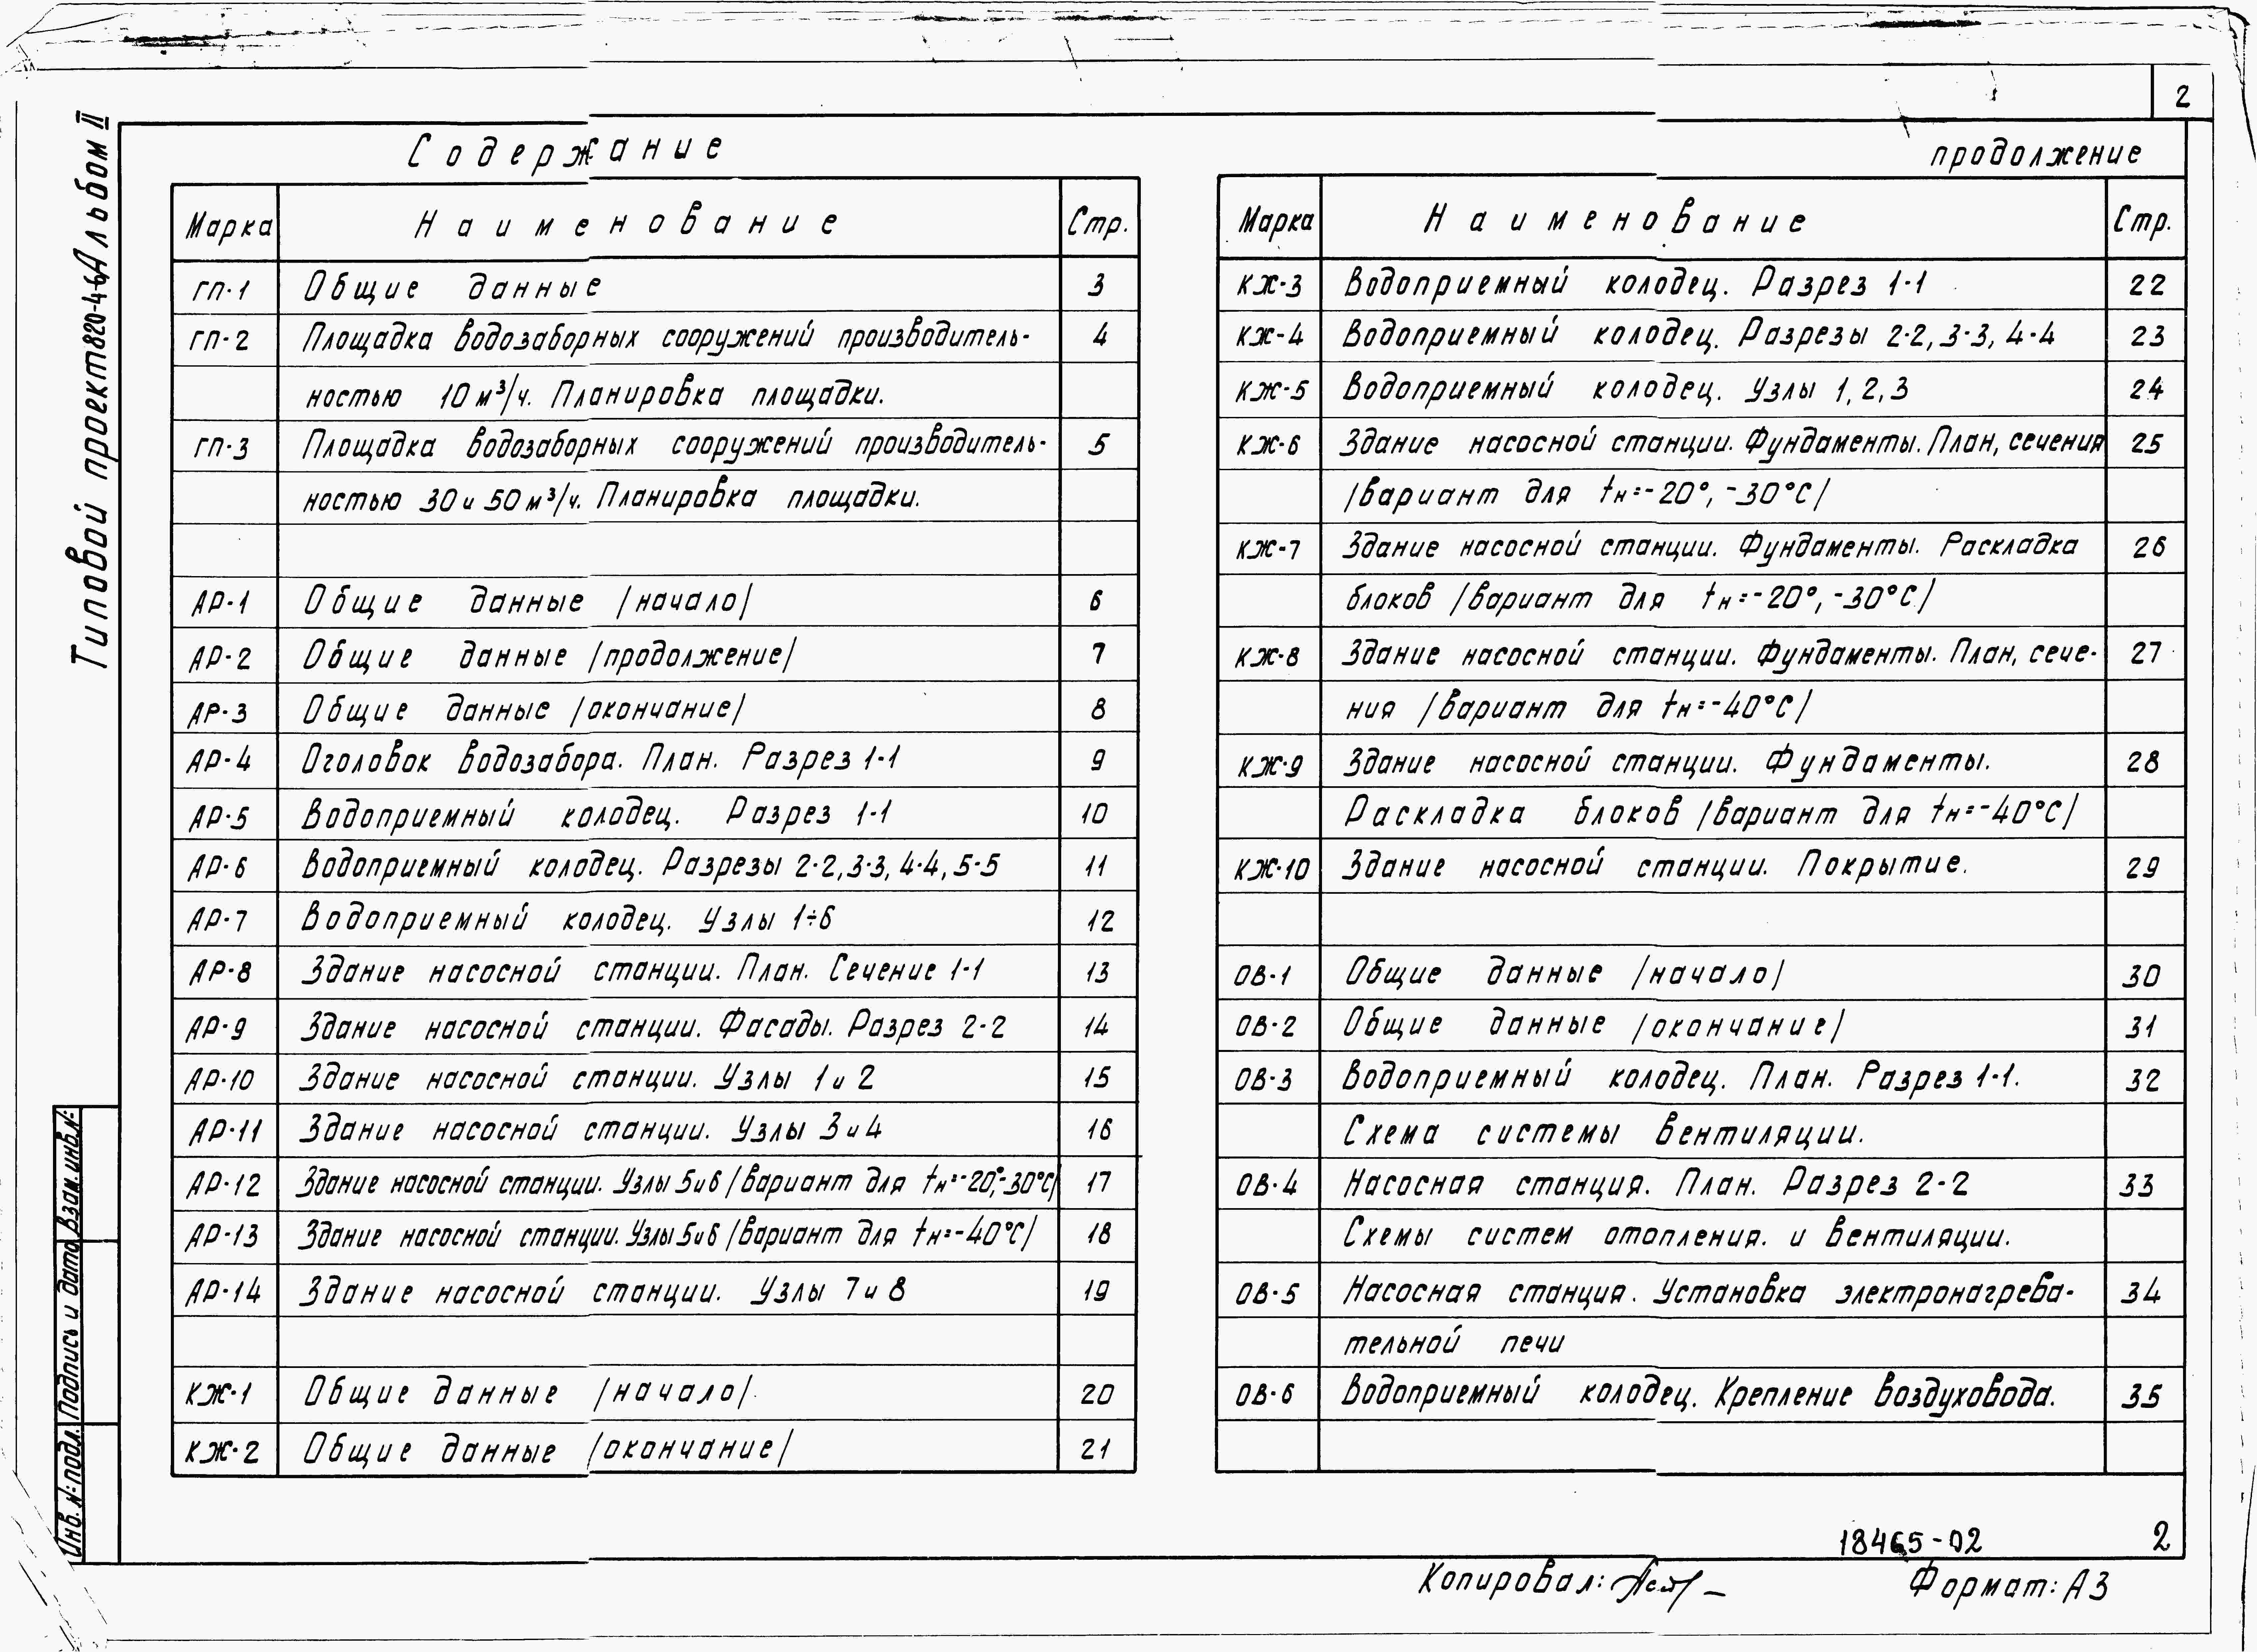 2
Типовой проект 820-4-6 Альбом II
Содержание
Марка Наименование Стр.
ГП-1 Общие данные 3
ГП-2 Площадка водозаборных сооружений производитель- 4
ностью 10 м³/ч. Планировка площадки.
ГП-3 Площадка водозаборных сооружений производитель- 5
ностью 30 и 50 м³/ч. Планировка площадки.
АР-1 Общие данные /начало/ 6
АР-2 Общие данные /продолжение/ 7
АР-3 Общие данные /окончание/ 8
АР-4 Оголовок водозабора. План. Разрез 1-1 9
АР-5 Водоприемный колодец. Разрез 1-1 10
АР-6 Водоприемный колодец. Разрезы 2-2, 3-3, 4-4, 5-5 11
АР-7 Водоприемный колодец. Узлы 1÷6 12
АР-8 Здание насосной станции. План. Сечение 1-1 13
АР-9 Здание насосной станции. Фасады. Разрез 2-2 14
АР-10 Здание насосной станции. Узлы 1 и 2 15
АР-11 Здание насосной станции. Узлы 3 и 4 16
АР-12 Здание насосной станции. Узлы 5 и 6 /вариант для tн=-20°,-30°С/ 17
АР-13 Здание насосной станции. Узлы 5 и 6 /вариант для tн=-40°С/ 18
АР-14 Здание насосной станции. Узлы 7 и 8 19
КЖ-1 Общие данные /начало/. 20
КЖ-2 Общие данные /окончание/ 21
продолжение
Марка Наименование Стр.
КЖ-3 Водоприемный колодец. Разрез 1-1 22
КЖ-4 Водоприемный колодец. Разрезы 2-2, 3-3, 4-4 23
КЖ-5 Водоприемный колодец. Узлы 1, 2, 3 24
КЖ-6 Здание насосной станции. Фундаменты. План, сечения 25
/вариант для tн=-20°, -30°С/
КЖ-7 Здание насосной станции. Фундаменты. Раскладка 26
блоков /вариант для tн=-20°, -30°С/
КЖ-8 Здание насосной станции. Фундаменты. План, сече- 27
ния /вариант для tн=-40°С/
КЖ-9 Здание насосной станции. Фундаменты. 28
Раскладка блоков /вариант для tн=-40°С/
КЖ-10 Здание насосной станции. Покрытие. 29
ОВ-1 Общие данные /начало/ 30
ОВ-2 Общие данные /окончание/ 31
ОВ-3 Водоприемный колодец. План. Разрез 1-1. 32
Схема системы вентиляции.
ОВ-4 Насосная станция. План. Разрез 2-2 33
Схемы систем отопления. и вентиляции.
ОВ-5 Насосная станция. Установка электронагрева- 34
тельной печи
ОВ-6 Водоприемный колодец. Крепление воздуховода. 35
Инв. №: подл. Подпись и дата Взам. инв. №:
18465-02 2
Копировал: Формат: А3